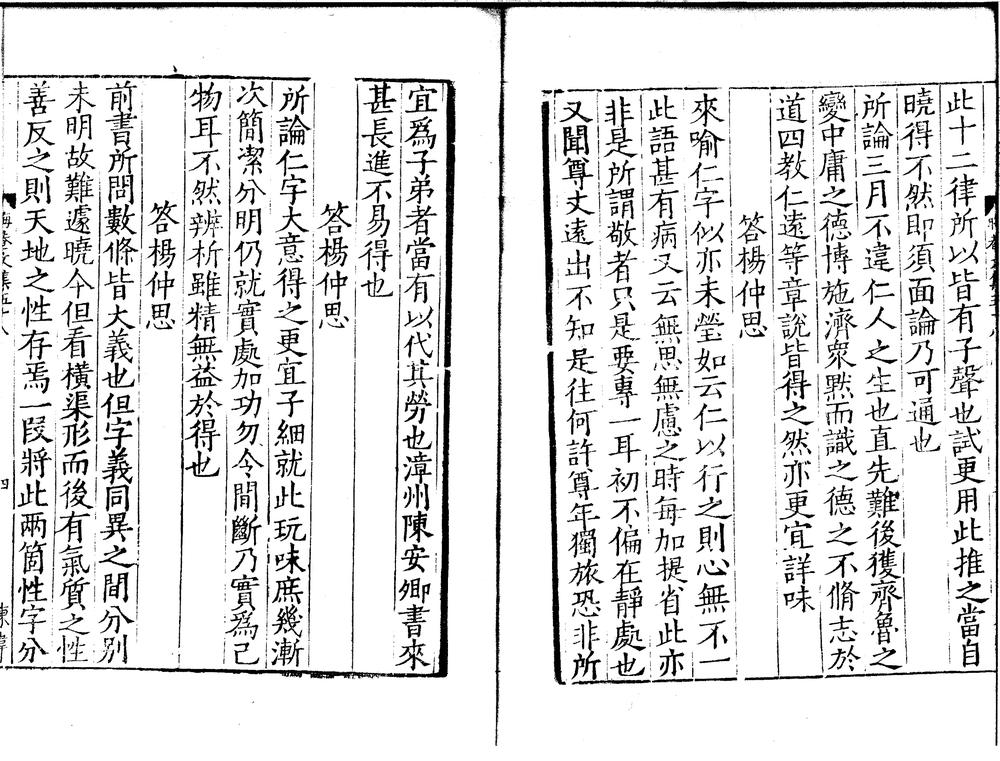 此十二律所以皆有子聲也試更用此推之當自
曉得不然即須面論乃可通也
所論三月不違仁人之生也直先難後獲齊魯之
變中庸之德博施濟衆黙而識之德之不脩志於
道四教仁遠等章說皆得之然亦更宜詳味
答楊仲思
來喻仁字似亦未瑩如云仁以行之則心無不一
此語甚有病又云無思無慮之時每加提省此亦
非是所謂敬者只是要專一耳初不偏在靜處也
又聞尊丈遠出不知是往何許尊年獨旅恐非所
宜爲子弟者當有以代其勞也漳州陳安卿書來
甚長進不易得也
答楊仲思
所論仁字大意得之更宜子細就此玩味庶幾漸
次簡潔分明仍就實處加功勿令間斷乃實爲己
物耳不然辨析雖精無益於得也
答楊仲思
前書所問數條皆大義也但字義同異之間分别
未明故難遽曉今但看橫渠形而後有氣質之性
善反之則天地之性存焉一段將此兩箇性字分
晦菴文集五十八
四